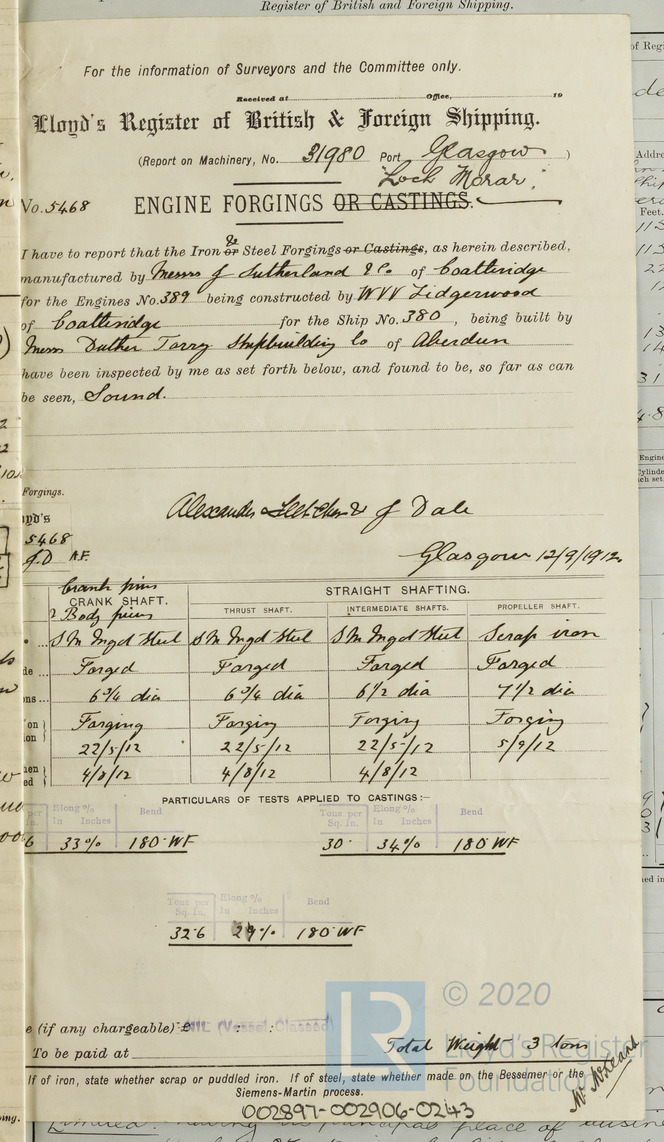 Register of British and Foreign Shipping.
For the information of Surveyors and the Committee only.
Received at Office, 19
Lloyd's Register of British & Foreign Shipping.
(Report on Machinery, No. 31980 Port Glasgow)
Loch Morar
No. 5468 ENGINE FORGINGS OR CASTINGS.
I have to report that the Iron or & Steel Forgings or Castings, as herein described,
manufactured by Messrs J Sutherland & Co of Coatbridge
for the Engines No. 389 being constructed by W V V Lidgerwood
of Coatbridge for the Ship No. 380, being built by
Messrs Duthie Torry Shipbuilding Co of Aberdeen
have been inspected by me as set forth below, and found to be, so far as can
be seen, Sound.
Forgings.
Alexander Fletcher & J Dale
5468
J.D A.F.
Glasgow 12/9/1912
Crank pins
CRANK SHAFT. STRAIGHT SHAFTING.
& Body pins THRUST SHAFT. INTERMEDIATE SHAFTS. PROPELLER SHAFT.
S M Ingd Steel S M Ingd Steel S M Ingd Steel Scrap iron
Forged Forged Forged Forged
6 3/4 dia 6 3/4 dia 6 1/2 dia 7 1/2 dia
Forging Forging Forging Forging
22/5/12 22/5/12 22/5/12 5/9/12
4/8/12 4/8/12 4/8/12
PARTICULARS OF TESTS APPLIED TO CASTINGS:—
Elong % In Inches Bend Tons per Sq. In. Elong % In Inches Bend
33% 180° WF 30· 34% 180° WF
Tons per Sq. In. Elong % In Inches Bend
32·6 29% 180° WF
© 2020
e (if any chargeable) £ NIL (Vessel Classed)
To be paid at Total Weight 3 tons
Lloyd's Register
Foundation
If of iron, state whether scrap or puddled iron. If of steel, state whether made on the Bessemer or the
Siemens-Martin process.
002897-002906-0243